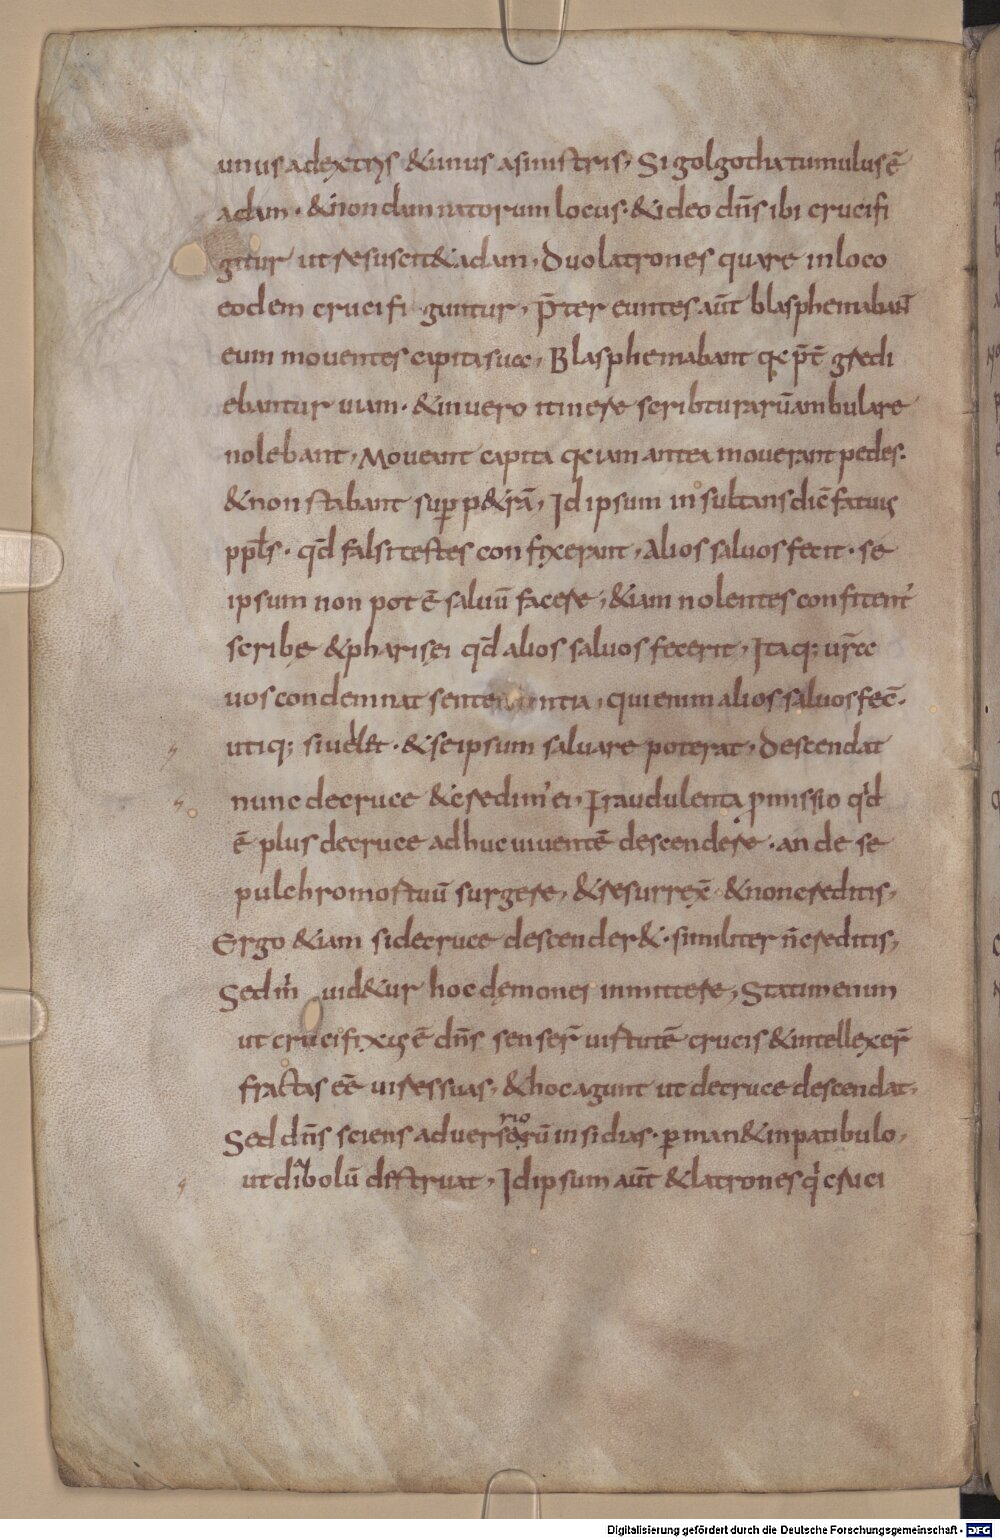 unus adextris &unus asinistris, Si golgotha tumulus ē
adam · & non damnatorum locus · & ideo dn̄s ibi crucifi
gitur ut resuscit& adam, Duo latrones quare in loco
eodem crucifi guntur, P̄ter euntes aūt blasphemaban̄
eum mouentes capita sua, Blasphemabant qc p̄t̄ gredi
ebantur uiam · & in uero itinere scribturarū ambulare
nolebant, Moueant capita qc iam antea mouerant pedes.
& non stabant sup p&rā, Id ipsum insultans dic̄ fatuus
ppl̄s · qd̄ falsi testes confixerant, Alios saluos fecit · se
ipsum non pot ē saluū facere, &iam nolentes confitent'
scribę & pharisei qd̄ alios saluos fecerit, Itaq; ur̄a
uos condemnat sententia, qui enim alios saluos fec̄.
utiq; si uell& · & se ipsum saluare poterat, Descendat
nunc decruce & credim' ei, Fraudulenta pmissio qd
ē plus decruce adhuc uiuentē descendere · an de se
pulchro mortuū surgere, & resurrex̄ & non creditis,
Ergo &iam si decruce descender& · similiter n̄ creditis,
Sed m̄ uid&ur hoc demones inmittere, Statim enim
ut crucifixus ē dn̄s senser̄ uirtutē crucis & intellexer̄
fractas eē uires suas, & hoc agunt ut decruce descendat.
Sed dn̄s sciens aduersariorū insidias · pman& in patibulo,
ut diabolū destruat, Id ipsum aūt & latrones q̇ cruci
Digitalisierung gefördert durch die Deutsche Forschungsgemeinschaft - DFG